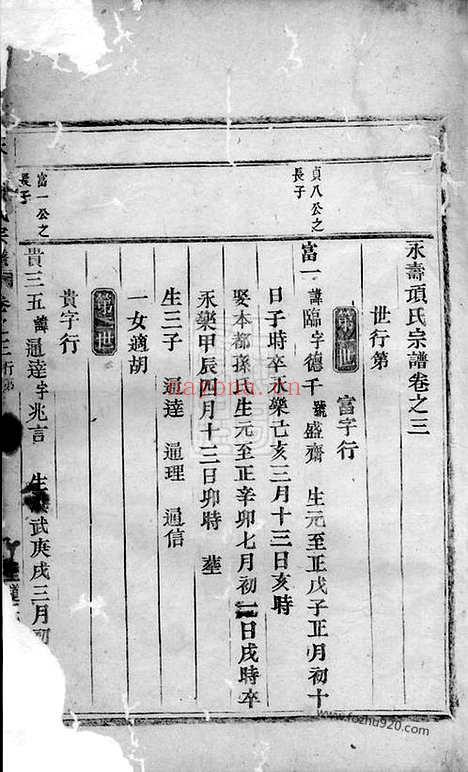 永壽項氏宗譜卷之三
世行第
第一世
富字行
貞八公之
長子
富一 諱臨字德千號盛齋 生元至正戊子正月初十
日子時卒永樂己亥三月十三日亥時
娶本都孫氏生元至正辛卯七月初二日戌時卒
永樂甲辰四月十二日卯時 葬
生三子 通達 通理 通信
一女適胡
第二世
貴字行
富一公之
長子
貴三五 諱通達字兆言 生洪武庚戌三月初
卷之三 行第
www.fozhu920.com